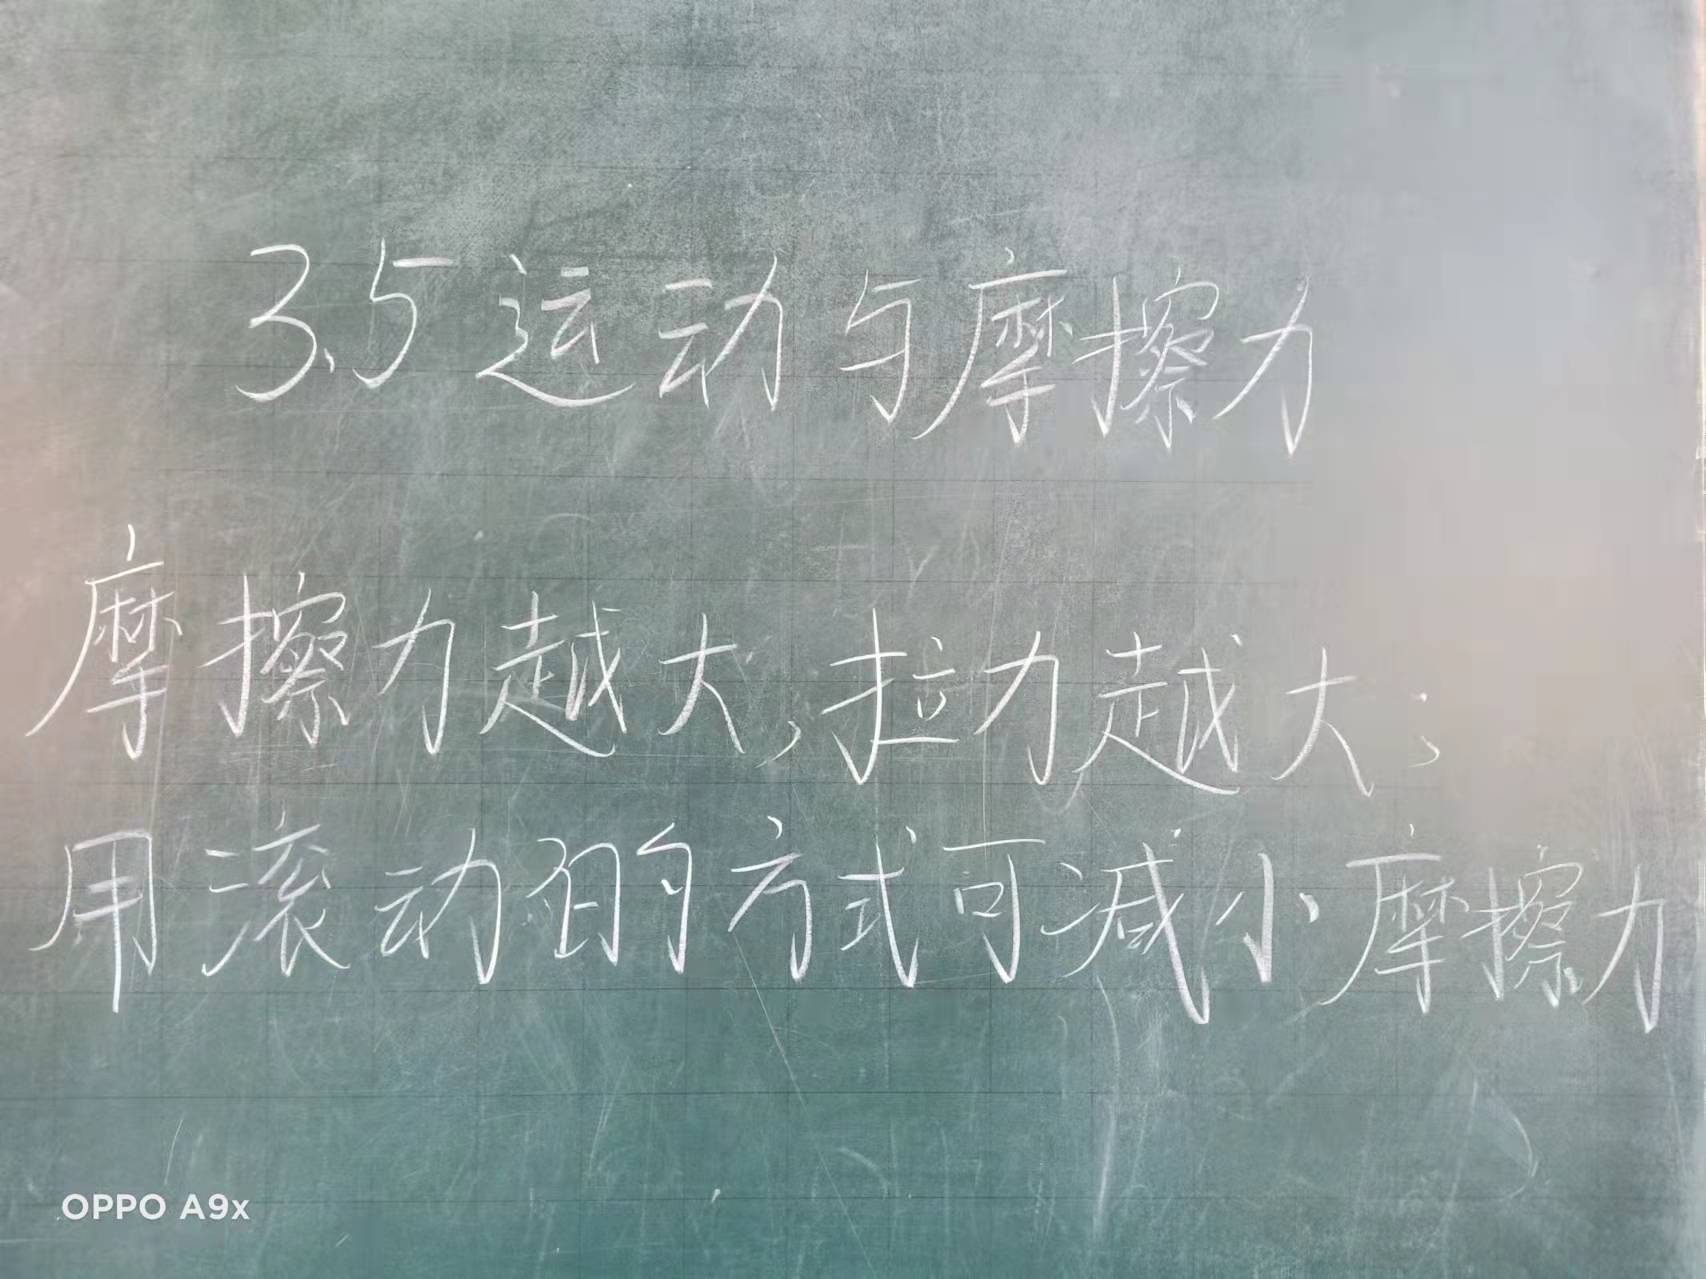 3.5运动与摩擦力
摩擦力越大,拉力越大;
用滚动的方式可减小摩擦力
OPPO A9x